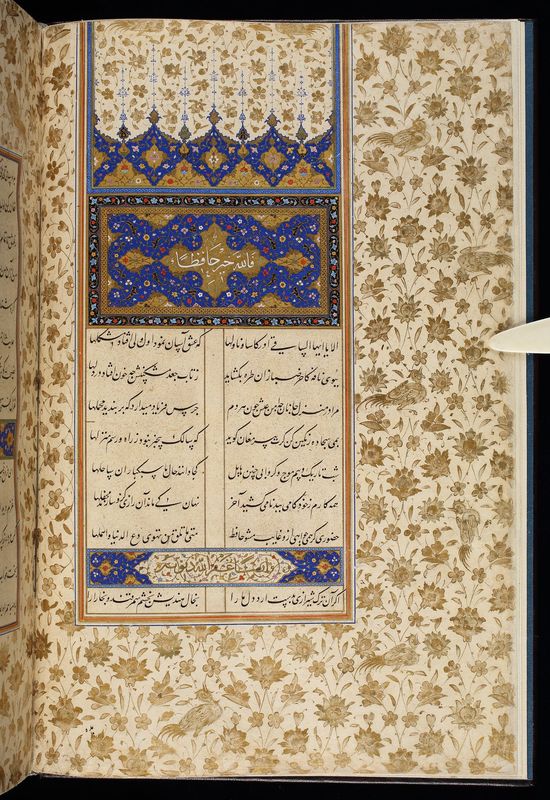 فالله خیر حافظا
الا یا ایها الساقی ادر کاسا و ناولها که عشق آسان نمود اول ولی افتاد مشکلها
ببوی نافه کاخر صبا زان طره بگشاید ز تاب جعد مشکینش چه خون افتاد در دلها
مرا در منزل جانان چه امن عیش چون هر دم جرس فریاد میدارد که بربندید محملها
بمی سجاده رنگین کن گرت پیر مغان گوید که سالک بیخبر نبود ز راه و رسم منزلها
شب تاریک و بیم موج و گردابی چنین هایل کجا دانند حال ما سبکباران ساحلها
همه کارم ز خودکامی ببدنامی کشید آخر نهان کی ماند آن رازی کزو سازند محفلها
حضوری گر همی خواهی ازو غایب مشو حافظ متی ما تلق من تهوی دع الدنیا و اهملها
وله ایضا غفر الله ذنوبه
اگر آن ترک شیرازی بدست آرد دل ما را بخال هندویش بخشم سمرقند و بخارا را